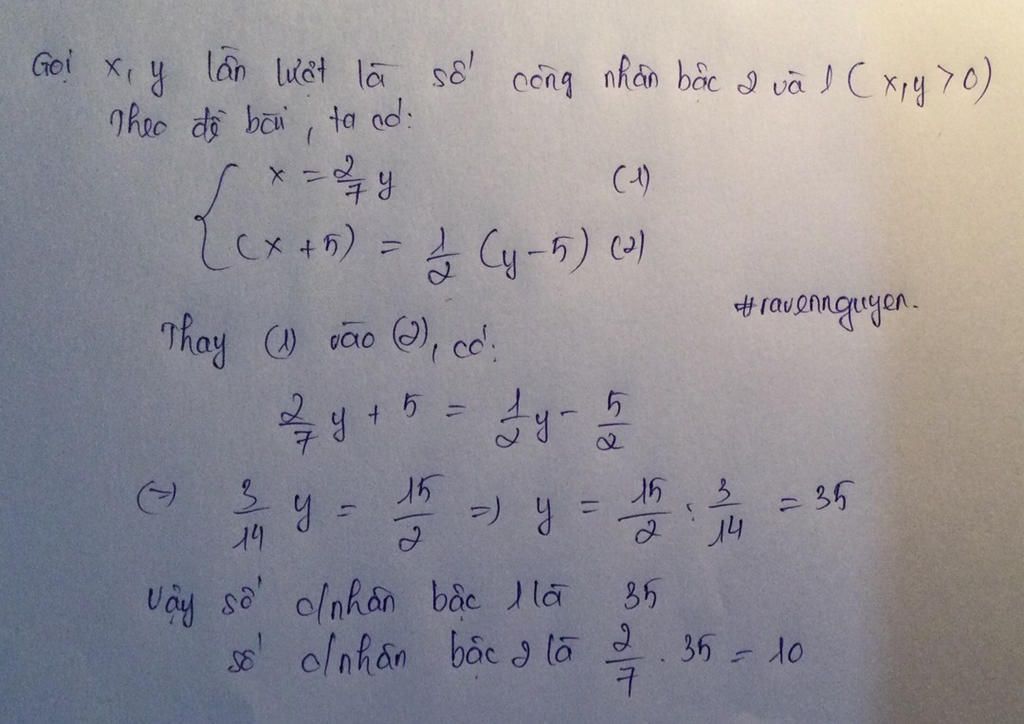 Gọi x, y lần lượt là số công nhân bậc 2 và 1 (x,y > 0)
Theo đề bài, ta có:
x = 2/7 y (1)
(x + 5) = 1/2 (y - 5) (2)
#ravennguyen.
Thay (1) vào (2), có:
2/7 y + 5 = 1/2 y - 5/2
(=) 3/14 y = 15/2 => y = 15/2 : 3/14 = 35
Vậy số c/nhân bậc 1 là 35
số c/nhân bậc 2 là 2/7 . 35 = 10